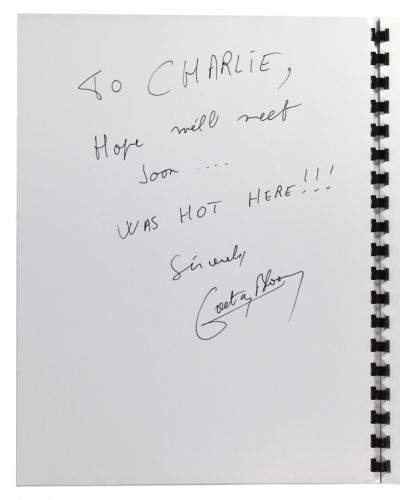 To CHARLIE,
Hope we'll meet
soon ....
WAS HOT HERE!!!
Sincerely
Gaetan Bloom